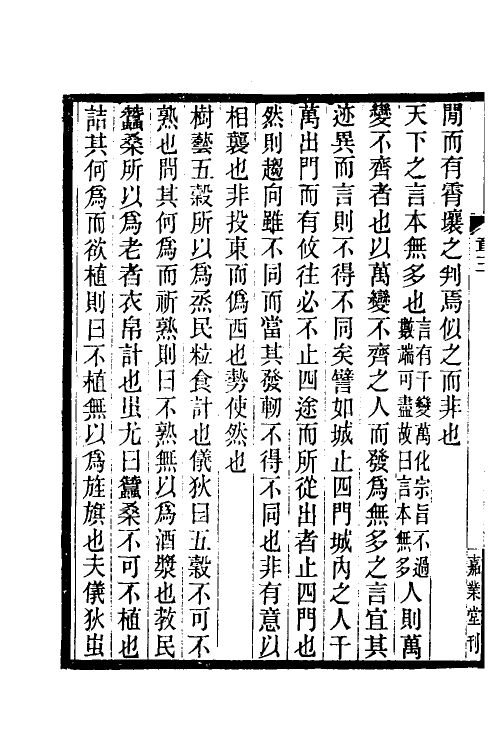 閒而有霄壤之判焉似之而非也
天下之言本無多也言有千變萬化宗旨不過數端可盡故曰言本無多人則萬
變不齊者也以萬變不齊之人而發爲無多之言宜其
迹異而言則不得不同矣譬如城止四門城內之人千
萬出門而有攸往必不止四途而所從出者止四門也
然則趨向雖不同而當其發軔不得不同也非有意以
相襲也非投東而僞西也勢使然也
樹藝五穀所以爲烝民粒食計也儀狄曰五穀不可不
熟也問其何爲而祈熟則曰不熟無以爲酒漿也教民
蠶桑所以爲老者衣帛計也蚩尤曰蠶桑不可不植也
詰其何爲而欲植則曰不植無以爲旌旗也夫儀狄蚩
嘉業堂刊